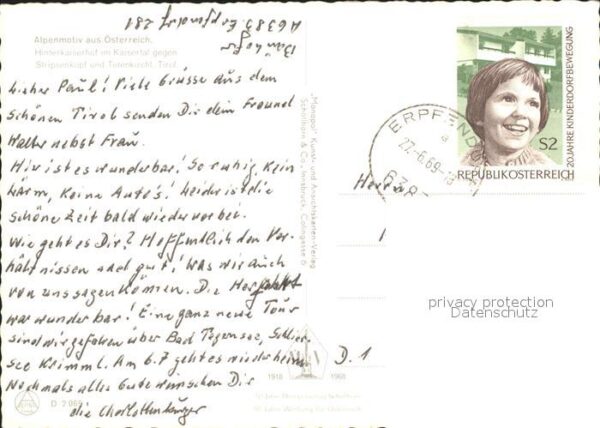 A 6383 Erpfendorf 281
Alpenmotiv aus Österreich.
Hinterkaiserhof im Kaisertal gegen
Stripsenkopf und Totenkirchl, Tirol
Lieber Paul! Viele Grüsse aus dem
schönen Tirol senden Dir dein Freund
Walter nebst Frau.
Hier ist es wunderbar! So ruhig, kein
Lärm, keine Auto's! Leider ist die
schöne Zeit bald wieder vorbei.
Wie geht es Dir? Hoffentlich den Ver-
hältnissen nach gut! Was wir auch
von uns sagen können. Die Herfahrt
war wunderbar! Eine ganz neue Tour
sind wir gefahren über Bad Tegernsee, Schlier-
see Krimml. Am 6.7 geht es wieder heim
Nochmals alles Gute wünschen Dir
die Charlottenburger
D 2062
„Monopol" Kunst- und Ansichtskarten-Verlag
Schöllhorn & Co., Innsbruck, Colingasse 6
1918 1968
ERPFENDORF
a
27.-6.69-18
6383
20 JAHRE KINDERDORFBEWEGUNG
S2
REPUBLIK ÖSTERREICH
Herrn
D. 1
privacy protection
Datenschutz